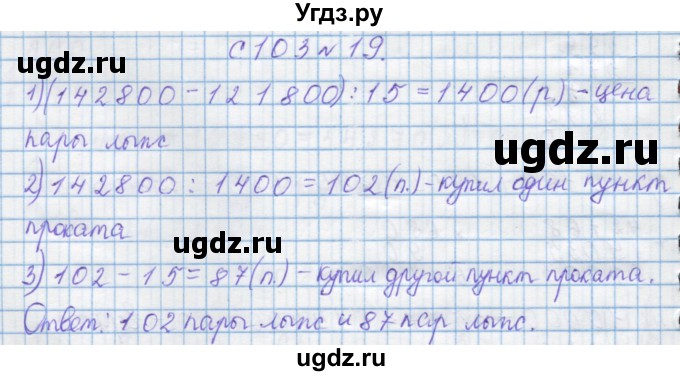 Угдз.ру
с 103 № 19.
ugdz.ru
1) (142800 - 121800) : 15 = 1400 (р.) - цена
пары лыж
ugdz.ru
2) 142800 : 1400 = 102 (п.) - купил один пункт
проката
ugdz.ru
3) 102 - 15 = 87 (п.) - купил другой пункт проката.
Ответ: 102 пары лыж и 87 пар лыж.
ugdz.ru
ugdz.ru